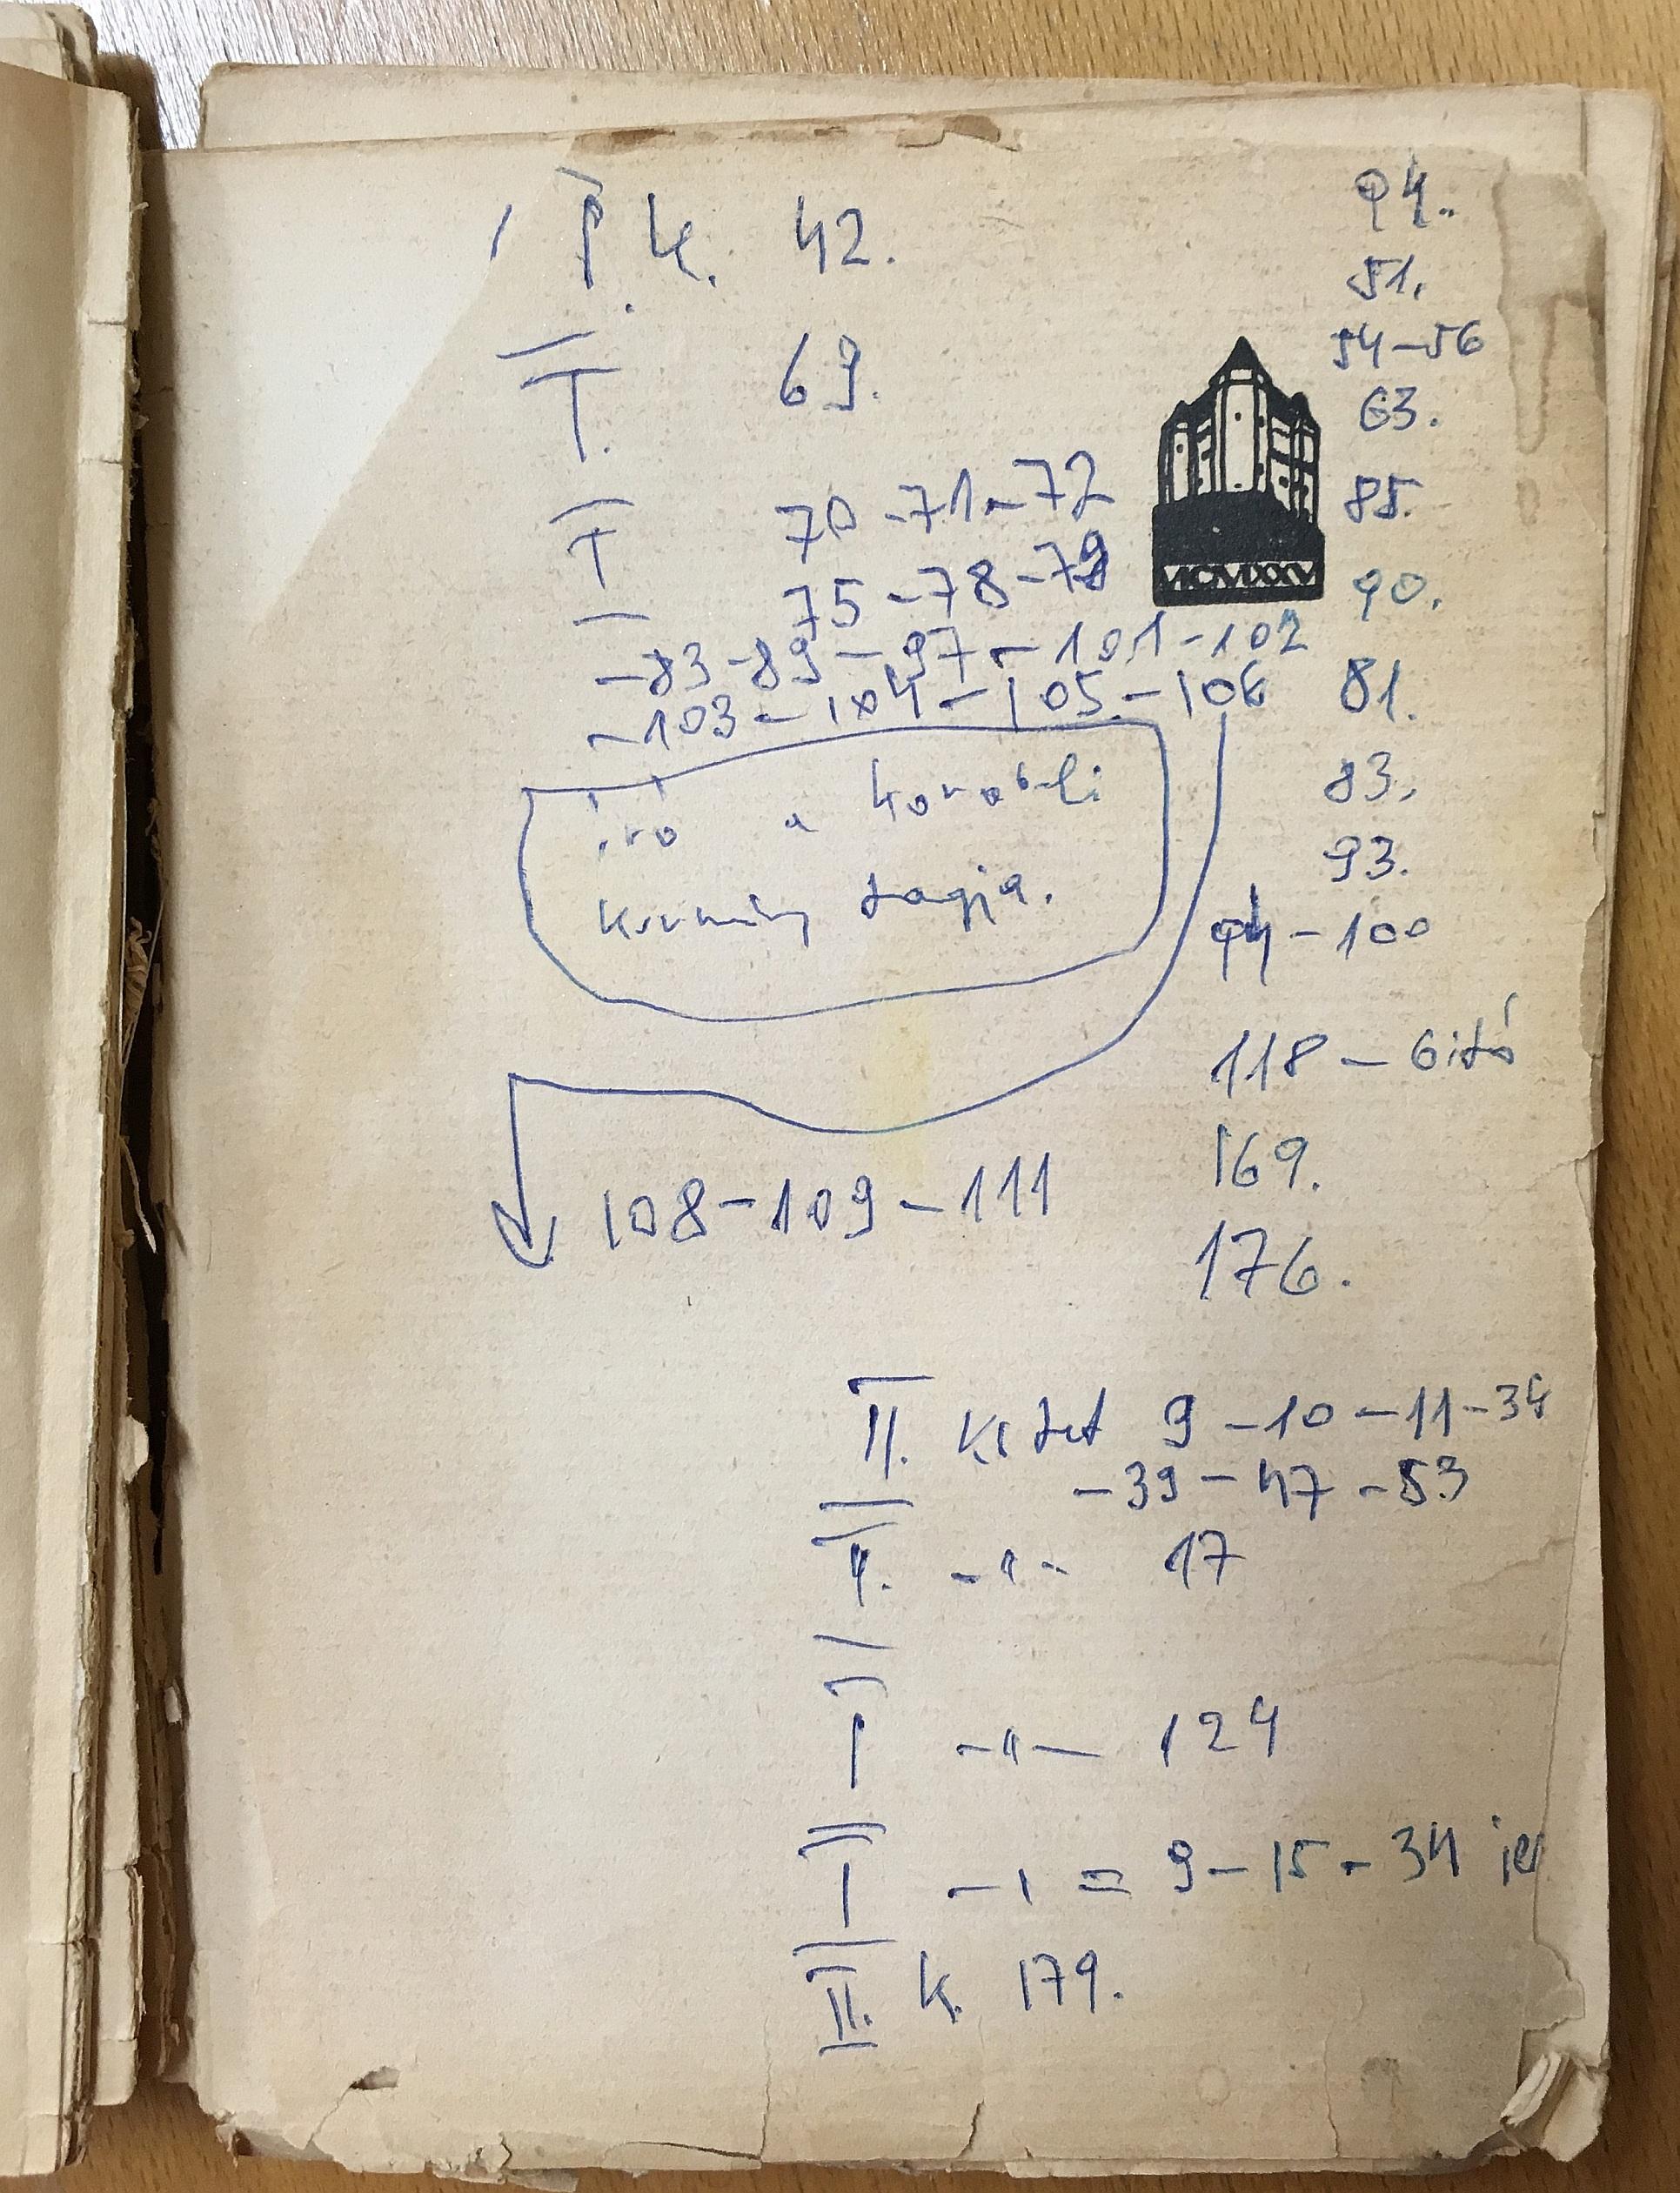 I k. 42.
I. 69.
I 70-71-72
75-78-79
-83-89-97-101-102
-103-104-105-106
író a korabeli
kormány tagja.
108-109-111
94.
51.
54-56
63.
85.
MCMXXV
90.
81.
83.
93.
94-100
118-
169.
176.
II. Kötet 9-10-11-34
-39-47-53
II. -"- 17
I -"- 124
I 9-15-34
II. k. 179.